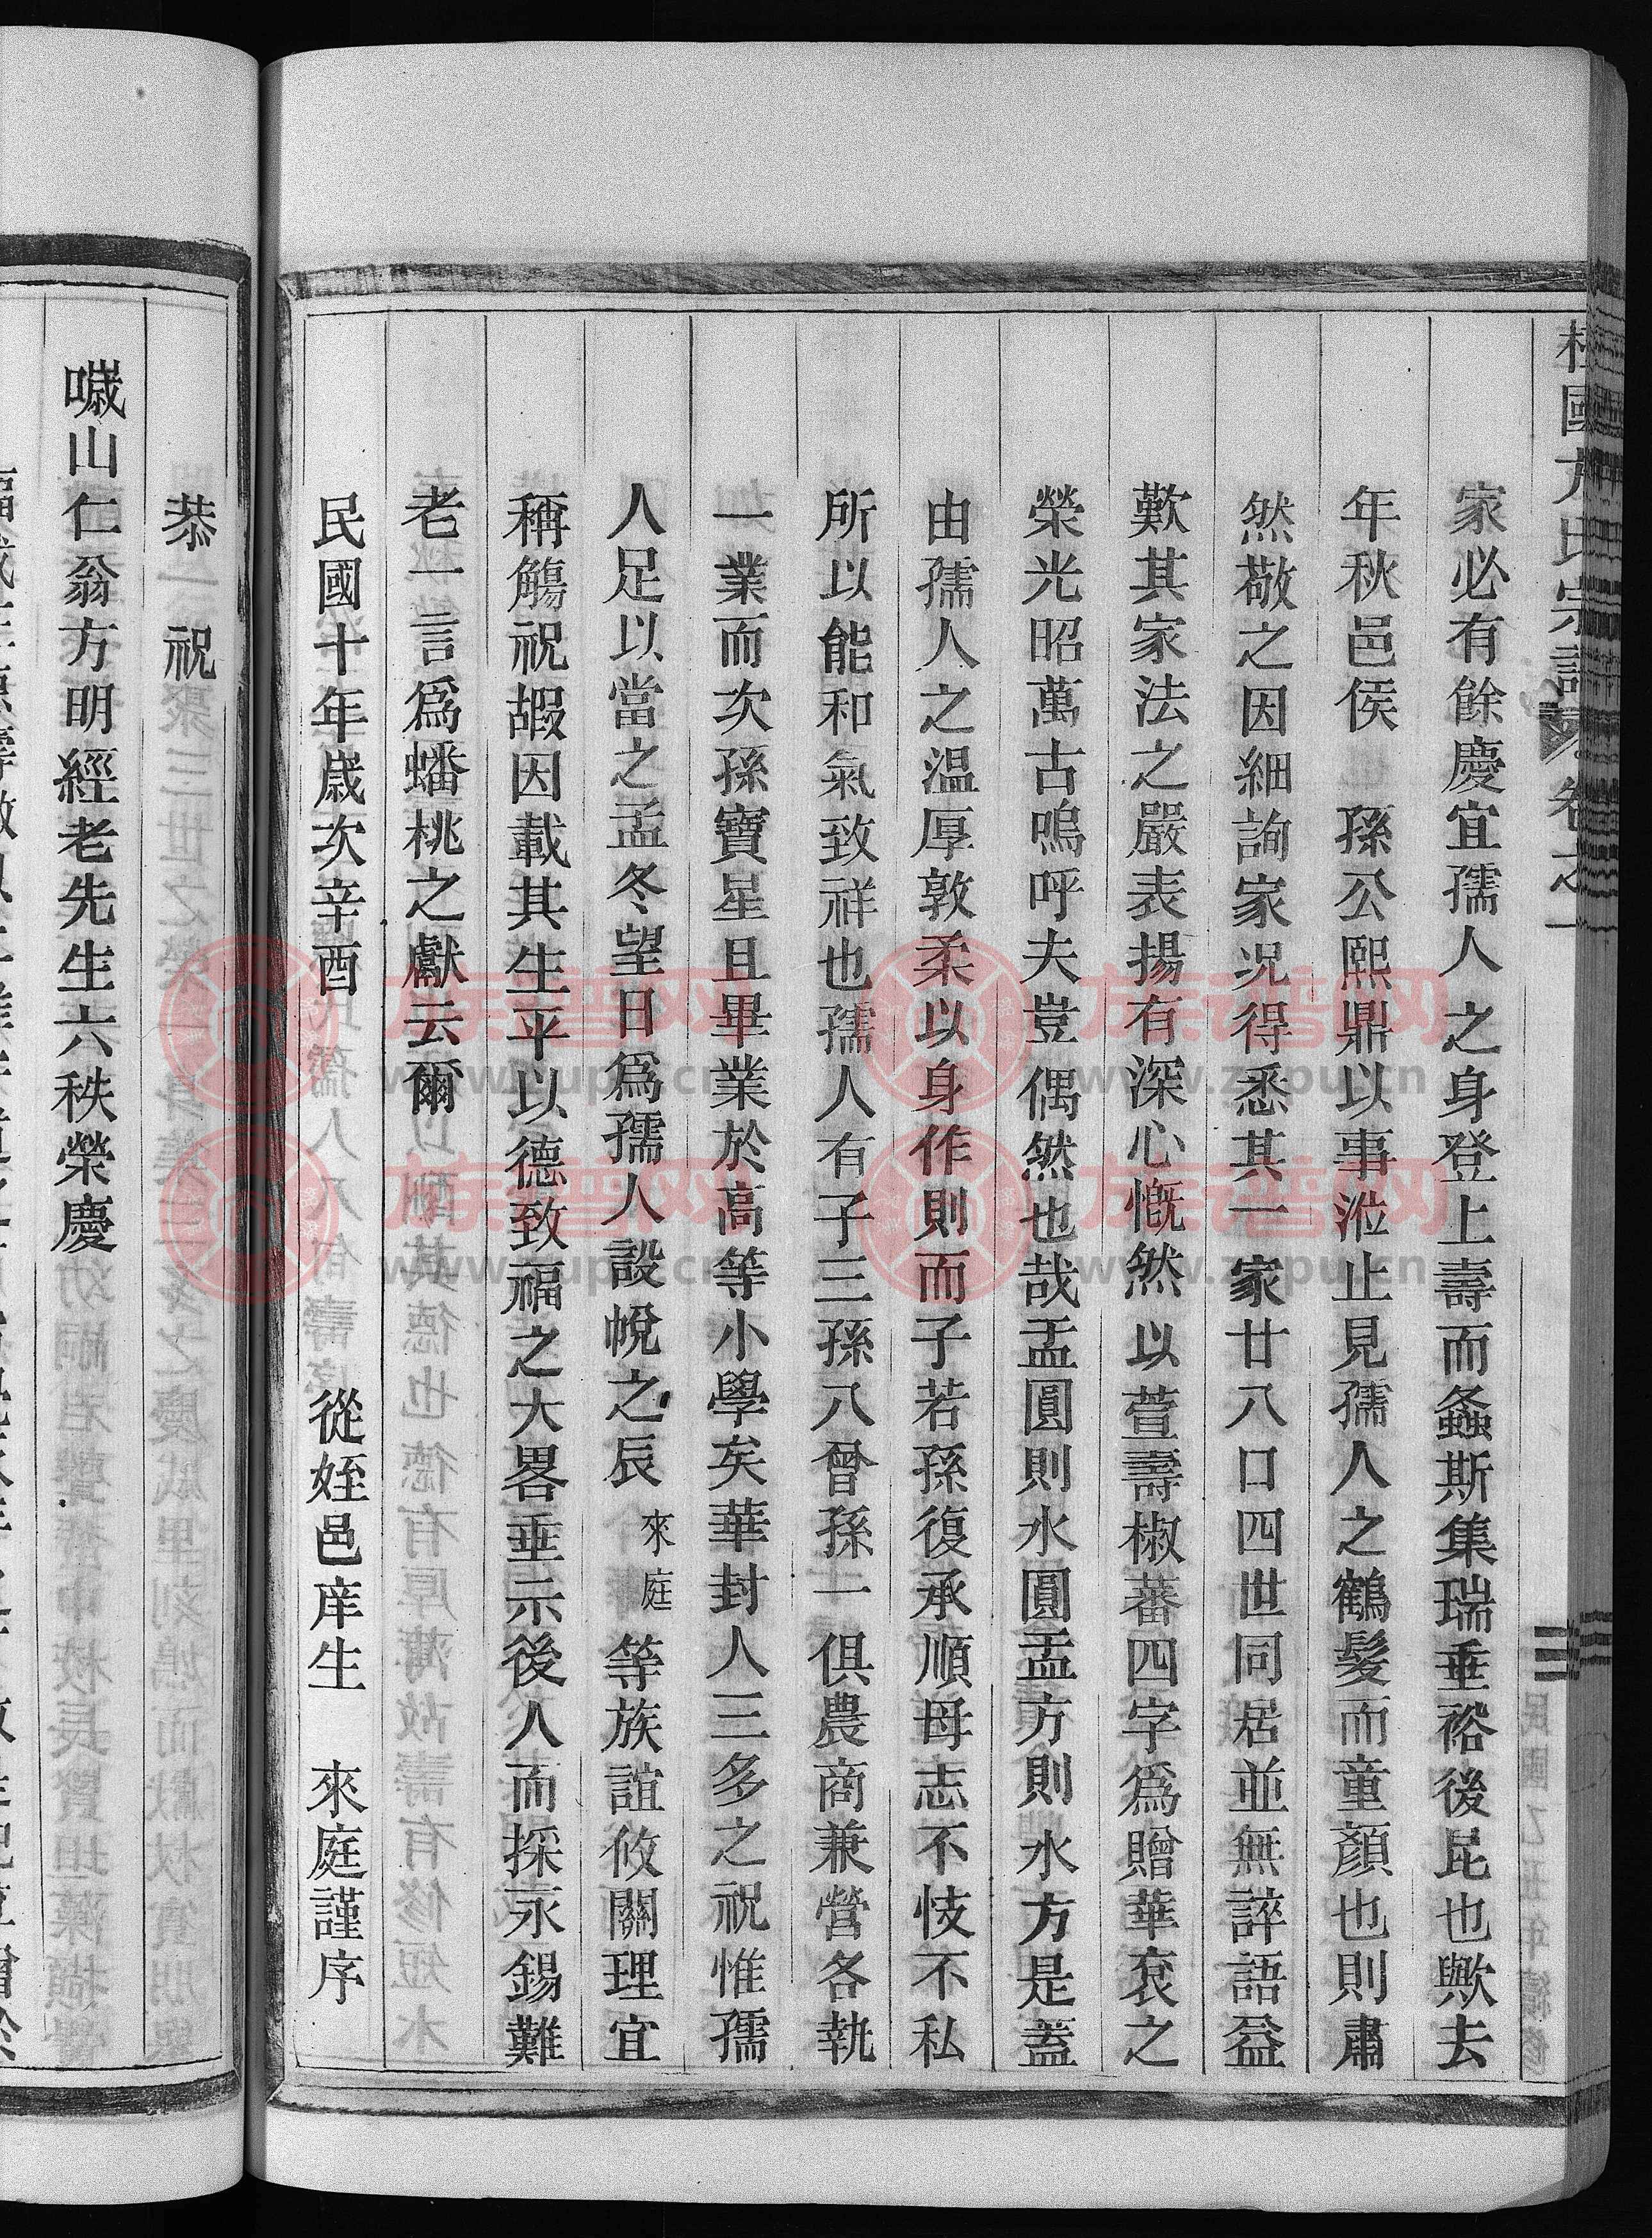 國方氏宗譜 卷之一
家必有餘慶宜孺人之身登上壽而螽斯集瑞垂裕後昆也歟去
年秋邑侯 孫公熙鼎以事涖止見孺人之鶴髮而童顏也則肅
然敬之因細詢家况得悉其一家廿八口四世同居並無誶語益
歎其家法之嚴表揚有深心慨然以萱壽椒蕃四字爲贈華袞之
榮光昭萬古嗚呼夫豈偶然也哉盂圓則水圓盂方則水方是蓋
由孺人之温厚敦柔以身作則而子若孫復承順母志不忮不私
所以能和氣致祥也孺人有子三孫八曾孫一俱農商兼營各執
一業而次孫寶星且畢業於高等小學矣華封人三多之祝惟孺
人足以當之孟冬望日爲孺人設帨之辰來庭等族誼攸關理宜
稱觴祝嘏因載其生平以德致福之大畧垂示後人而採永錫難
老一言爲蟠桃之獻云爾
民國十年歲次辛酉 從姪邑庠生 來庭謹序
恭祝
噦山仁翁方明經老先生六秩榮慶
族谱网
www.zupu.cn
族谱网
www.zupu.cn
族谱网
www.zupu.cn
族谱网
www.zupu.cn